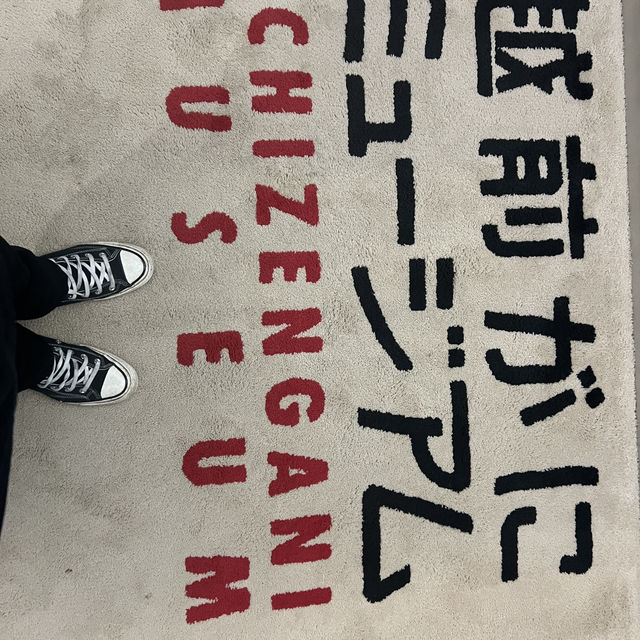 越前がに
ミュージアム
CHIZENGANI
USEUM